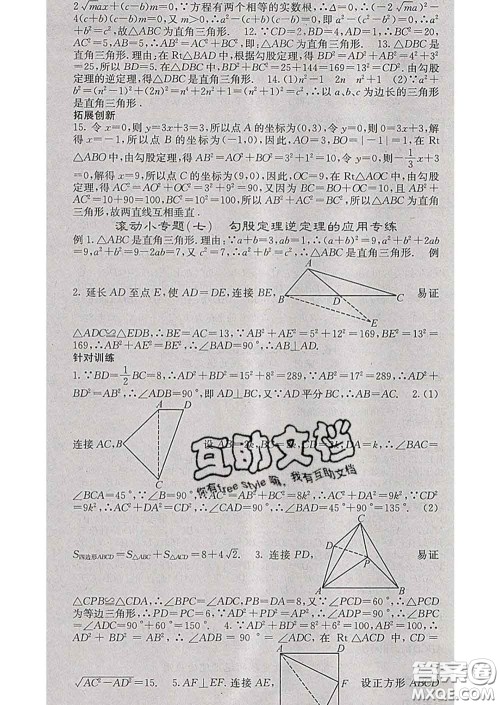 2√max+(c-b)m=0,∵方程有两个相等的实数根,∴Δ=0,∴(-2√ma)²-
4(c+b)(c-b)m=0,∴a²-(c+b)(c-b)=0,即a²-(c²-b²)=0,∴a²+b²
=c²,故△ABC为直角三角形. 12.∵CD=2,BD=4,AD=1,∴BC²=20,
AC²=5,AB²=25.∴AC²+BC²=AB²,即:△ABC为直角三角形. 13.△ABC是
直角三角形.理由:在Rt△BAD中,根据勾股定理,得BD²=AB²+AD²=4²+3²
=25,所以BD=5.在△DBC中,BD²+BC²=25+144=169=13²=CD².由勾股
定理的逆定理,得△DBC是直角三角形. 14.(1)n²-1 2n n²+1 (2)∵a²
+b²=(n²-1)²+(2n)²=n⁴+2n²+1=(n²+1)²=c²,∴以a,b,c为边长的三角形
是直角三角形.
拓展创新
15. 令x=0,则y=3x+3=3,所以点A的坐标为(0,3),令y=0,则3x+3=0,解
得x=-1,所以点B的坐标为(-1,0),因此,AO=3,BO=|-1|=1,在Rt
△ABO中,由勾股定理,得AB²=AO²+BO²=3²+1²=10,令y=0,则-1/3x+3
=0,解得x=9,所以点C的坐标为(9,0),因此OC=9,在Rt△AOC中,由勾股定
理,得AC²=AO²+OC²=3²+9²=90,又因为BC=BO+OC=10,且AB²+
AC²=10+90=100,BC²=10²=100,所以AB²+AC²=BC²,所以△ABC为直角
三角形,故两直线互相垂直.
滚动小专题(七) 勾股定理逆定理的应用专练
例1.△ABC是直角三角形.理由:∵a+b=3,ab=1,∴(a+b)²=9,a²+b²+2ab
=9,a²+b²=9-2=7,又∵c²=7,∴a²+b²=c²,∴△ABC是直角三角形. 例
2. 延长AD至点E,使AD=DE,连接BE, A B D C E 易证
△ADC≌△EDB,∴BE=AC=13,∵AB²+AE²=5²+12²=169,BE²=13²=
169,∴AB²+AE²=BE²,∴∠BAD=90°,∴AB⊥AD.
针对训练
1.∵BD=1/2BC=8,∴AD²+BD²=15²+8²=289,∵AB²=17²=289,∴AD²+
BD²=AB²,∴∠ADB=90°,即AD⊥BC,又∵AD平分BC,∴AB=AC. 2.(1)
连接AC, A D B C
∠BCA=45°,∵∠B=90°,∴AC²=AB²+BC²=8k²,∴AC²+DA²=9k²,∵CD²
=9k²,∴AC²+DA²=CD²,∴∠CAD=90°,∴∠DAB=45°+90°=135°. (2)
S四边形ABCD=S△ABC+S△ACD=8+4√2. 3. 连接PD, C D P A B 易证
△CPB≌△CDA,∴∠BPC=∠ADC,PD=DA=8,∵∠PCD=60°,∴△PCD
为等边三角形,∴PD=PC=6,∵PD²+AD²=AP²,∴∠PDA=90°,∴∠BPC=
∠ADC=90°+60°=150°. 4.∵AD²+BD²=12²+5²=169,AB²=13²=169,
∴AD²+BD²=AB²,∴∠ADB=90°=∠ADC,在Rt△ACD中,CD=
√AC²-AD²=15. 5.AF⊥EF.连接AE, A D F 设正方形ABCD
互助文档
你有free style嘛,我有互助文档
答案圈
MXQE.COM